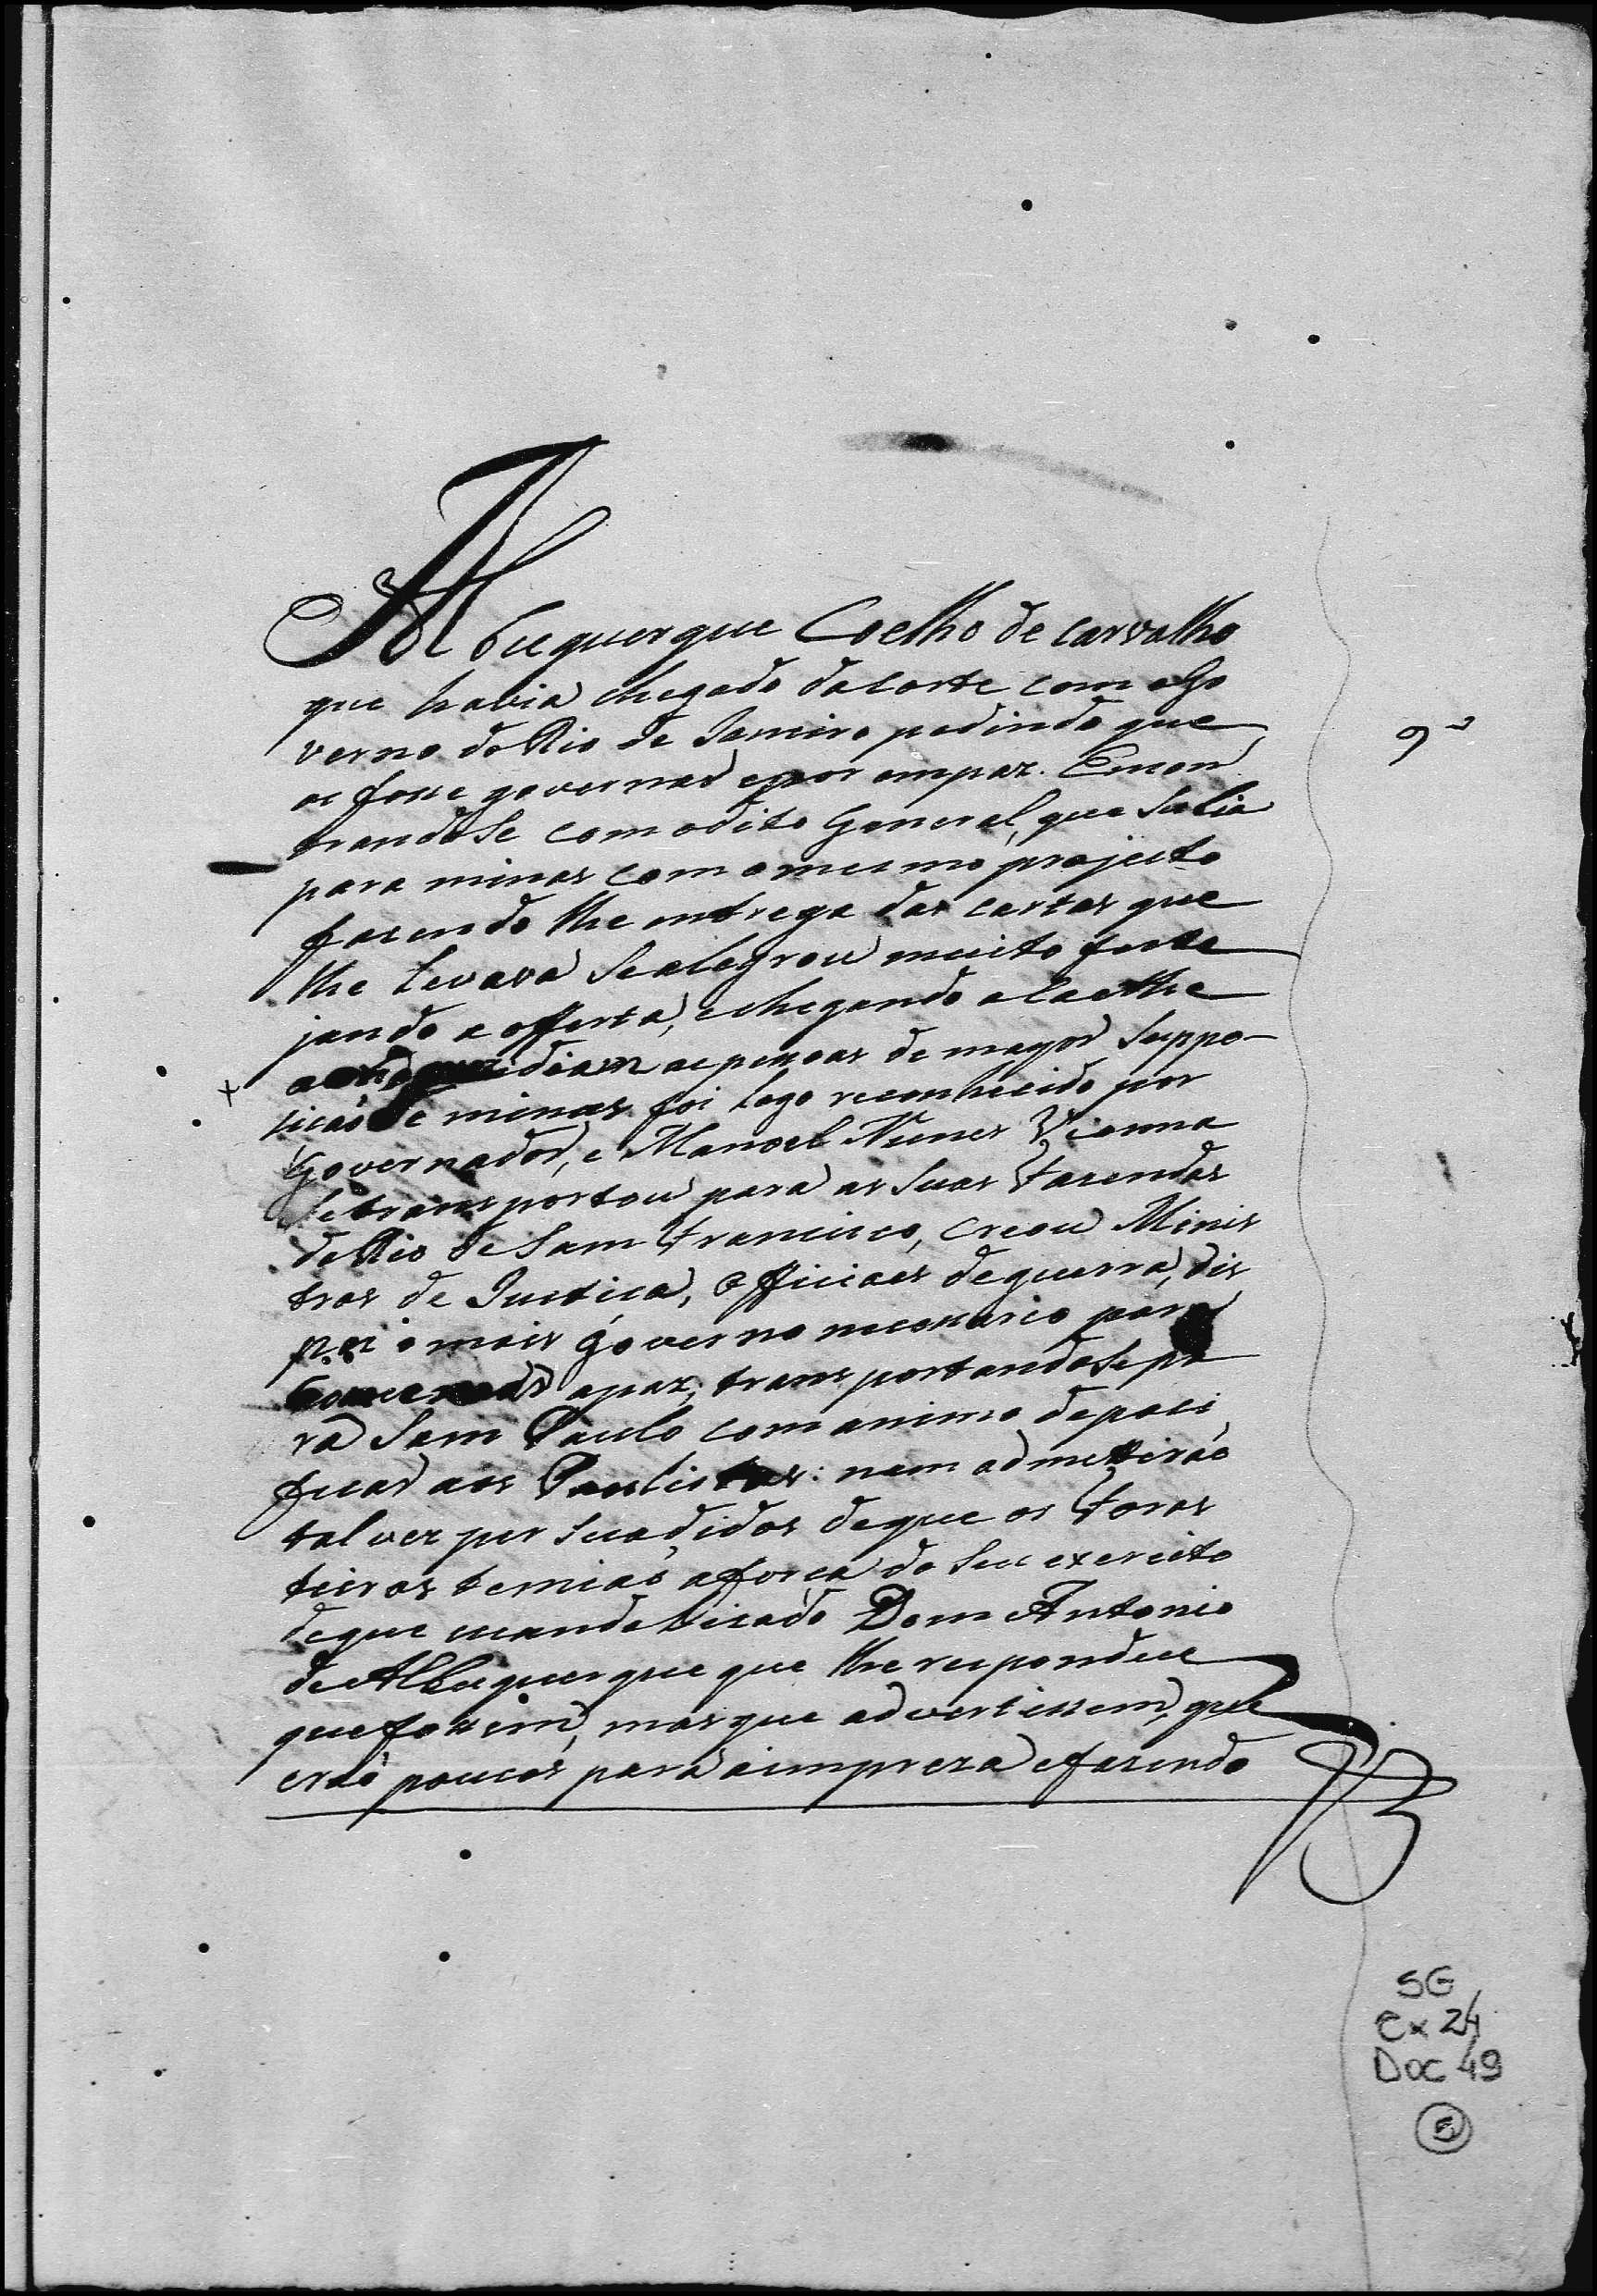 Albuquerque Coelho de Carvalho
que havia chegado da Corte com o Go
verno do Rio de Janeiro pedindo que
os fosse governar e por em paz. Encon
trandose com o dito General, que sahia
para minas com o mesmo projecto
fasendo lhe entrega das cartas que
lhe levava se alegrou muito feste
jando a offerta, e chegando a
as pessoas de mayor suppo-
sicaó de minas foi logo reconhecido por
Governador, e Manoel Nunes Vianna
se transportou para as suas fasendas
do Rio de Sam Francisco, creou Minis
tros de Justica, Officiaes de guerra, dis
poz o mais governo necessario para
a paz; transportandose pa
ra Sam Paulo com animo de paci
ficar aos Paulistas: nem admettiraó
talvez persuadidos de que os foras
teiros temiaó a forca do seu exercito
de que escandelisado Dom Antonio
de Albuquerque que lhe respondeu
que fossem, mas que advertissem, que
eraó poucos para a impreza e fasendo
9
SG
Cx 24
Doc 49
5